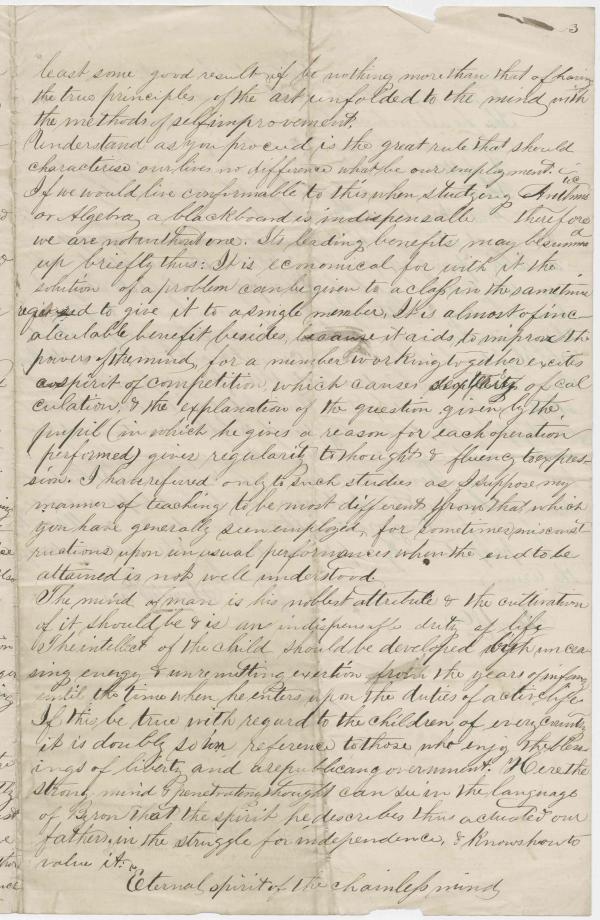 3
least some good result if be nothing more than that of having
the true principles of the art unfolded to the mind with
the methods of self improvement
Understand as you proceed is the great rule that should
characterise our lives no difference what be our employment.
If we would live conformable to this when studying
or Algebra, a blackboard is indispensable therefore
we are not without one. Its leading benefits may be summed
up briefly thus: It is economical for with it the
solution of a problem can be given to a class in the same time
required to give it to a single member, It is almost of inc
alculable benefit besides, because it aids to improve the
powers of the mind, for a member working together excites
a spirit of competition, which causes dexterity of cal
culation, & the explanation of the question given by the
pupil (in which he gives a reason for each operation
performed) gives regularity to thought & fluency to expres-
sion. I have referred only to such studies as I suppose my
manner of teaching to be most different from that which
you have generally seen employed, for sometimes misconst
ructions upon unusual performances when the end to be
attained is not well understood
The mind of man is his noblest attribute & the cultivation
of it should be & is an indispensable duty of life
The intellect of the child should be developed with uncea
sing energy & unremitting exertion from the years of infancy
until the time when he enters upon the duties of active life
If this be true with regard to the children of every country
it is doubly so in reference to those who enjoy the bless
ings of liberty and a republican government. Here the
strong mind & penetrating thought can see in the language
of Byron that the spirit he describes thus actuated our
fathers in the struggle for independence, & knows how to
value it:
"Eternal spirit of the chainless mind